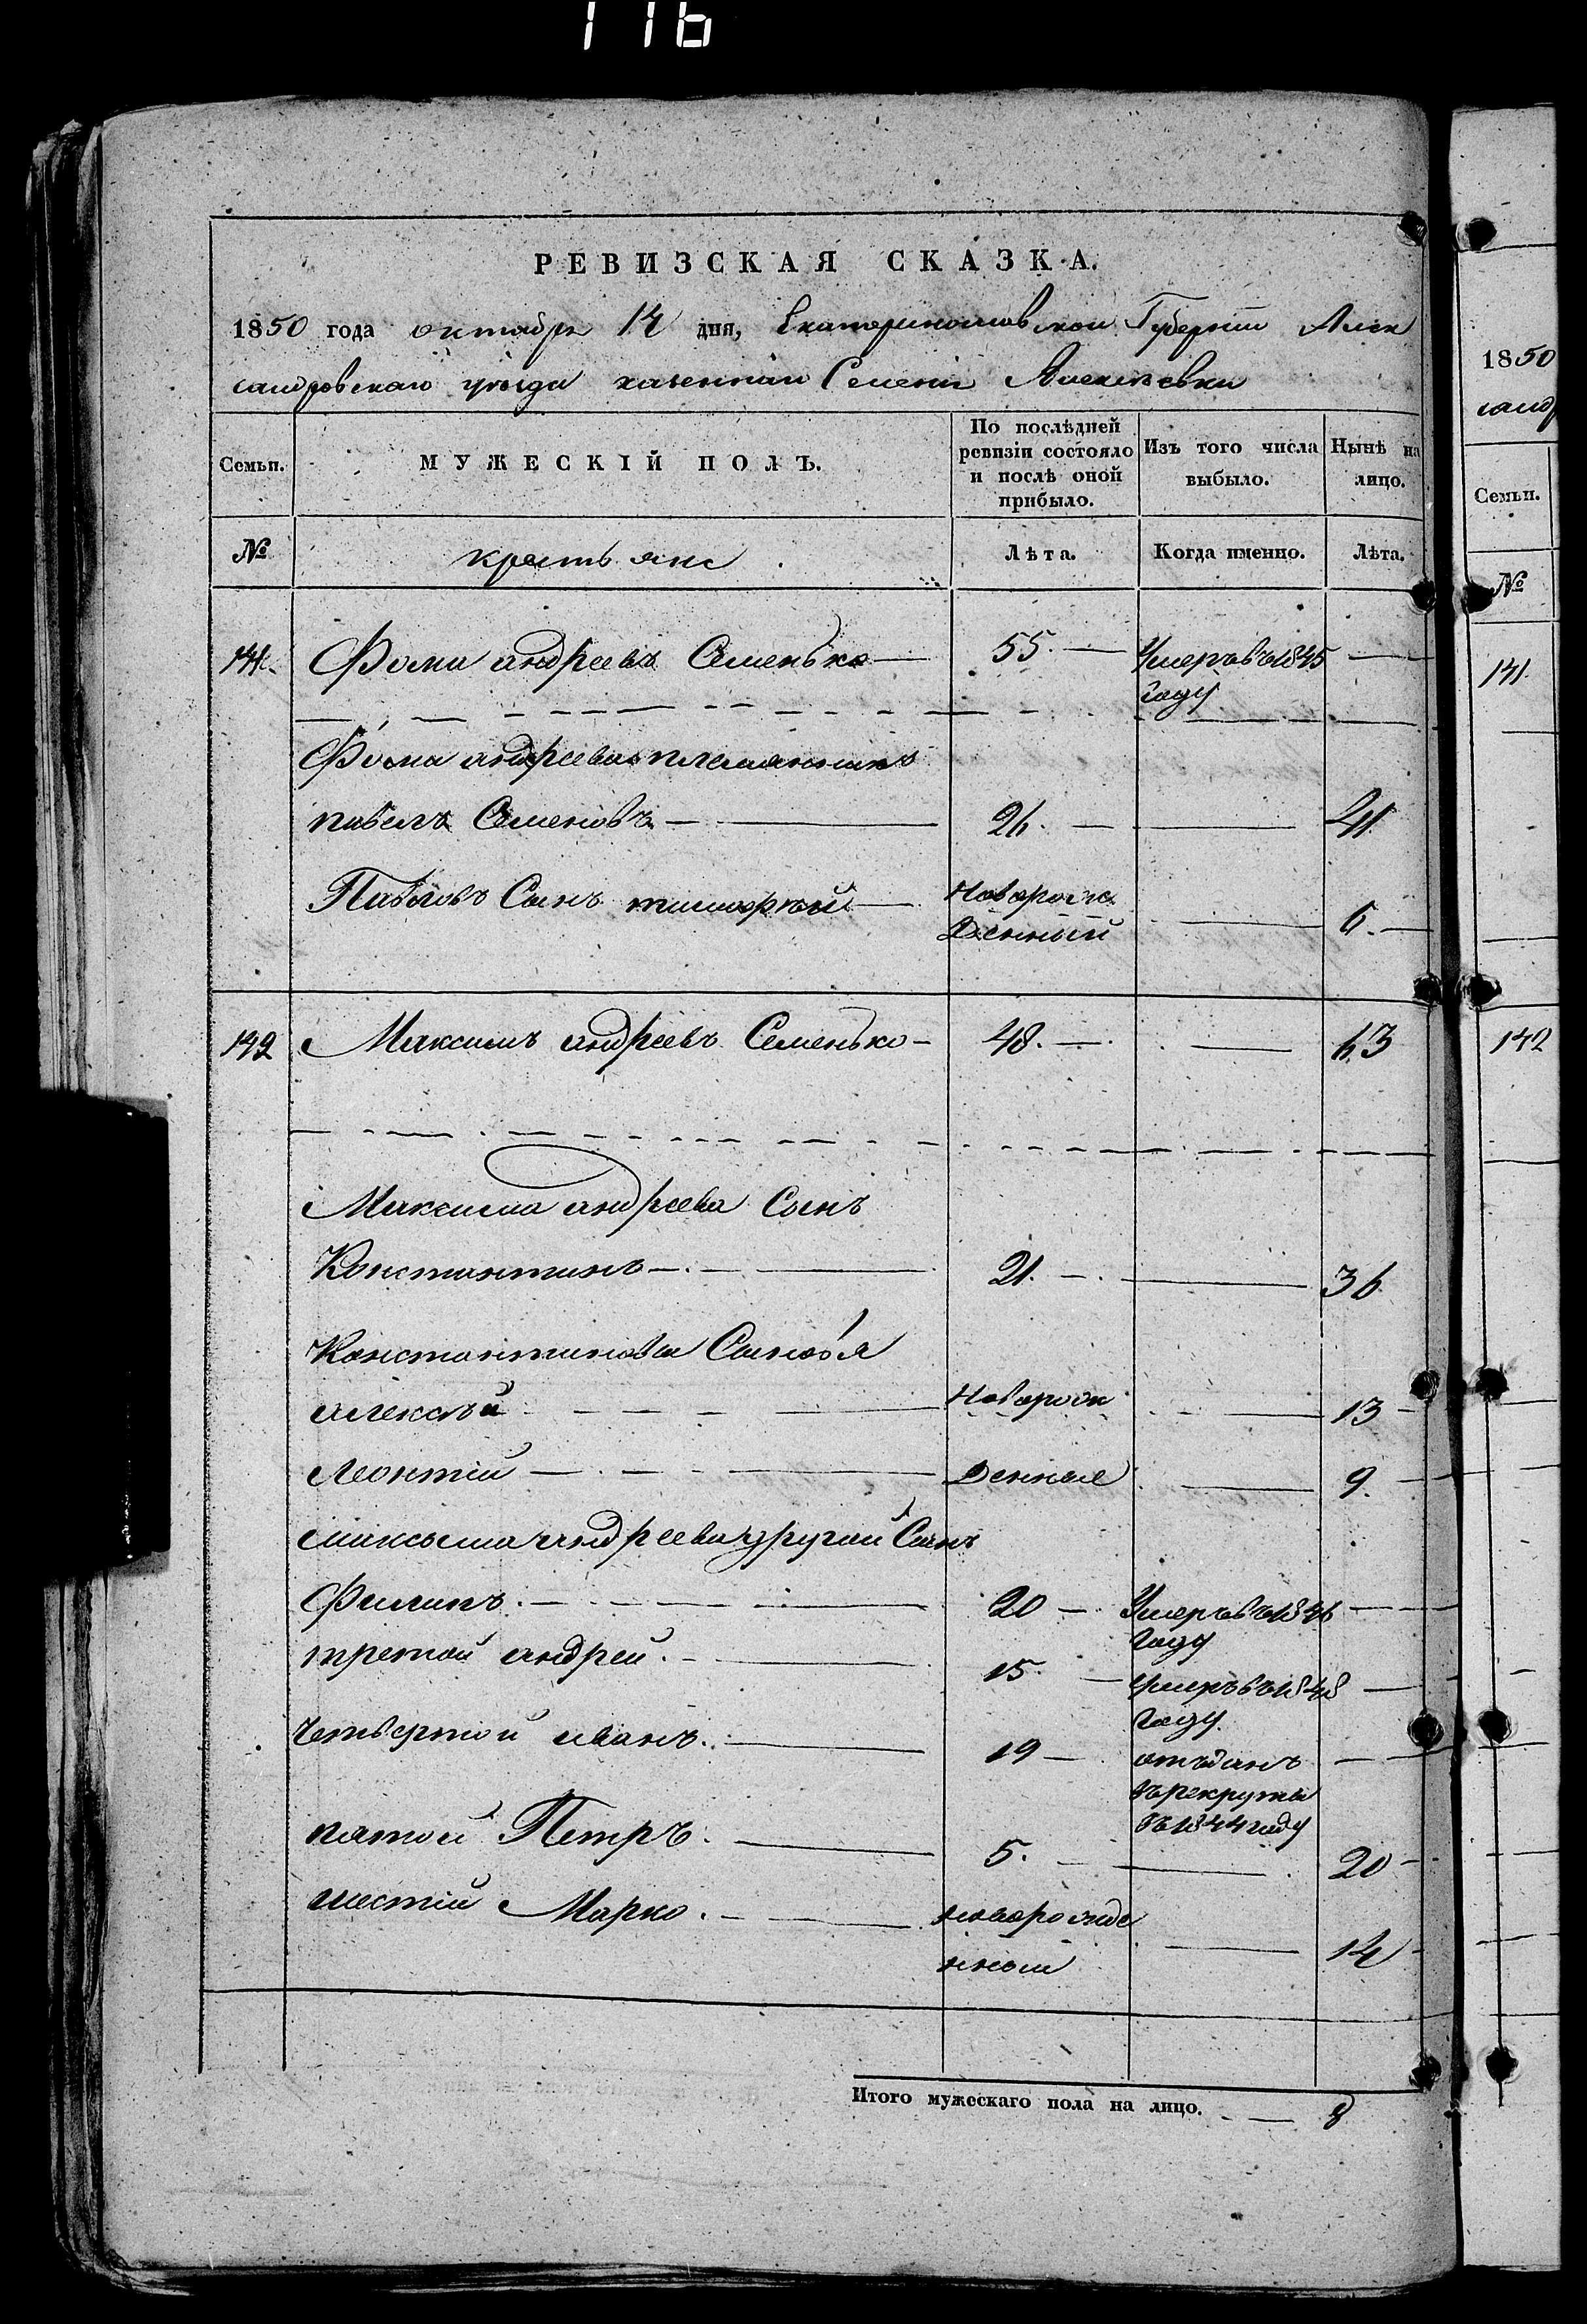 116
РЕВИЗСКАЯ СКАЗКА.
1850 года октября 14 дня, Екатеринославской Губернiи Алек
сандровскаго уѣзда казеннаи Селенiи Алексѣевки
Семьи.
МУЖЕСКІЙ ПОЛЪ.
По послѣдней ревизіи состояло и послѣ оной прибыло.
Изъ того числа выбыло.
Нынѣ на лицо.
№
крестьяне
Лѣта.
Когда именно.
Лѣта.
141. Фома андреевъ Семенько — 55. — Умеръ въ 1845 —
году
Фома андреева племянникъ
павелъ Семеновъ — 26. — — 41
Павловъ Сынъ тимофѣй — Новорож
денный — 6. —
142 Максимъ андреевъ Семенько — 48. — — 63
Максима андреева Сынъ
Константинъ — 21. — — 36
Константинова Сыновья
алексѣй — Новорож — 13
Леонтiй — денные — 9.
максыма андреева другой Сынъ
Филипъ. — 20 — Умеръ въ 1846 —
году
третой андрей. — 15. — умеръ въ 1848 —
году.
четвертой иванъ. — 19 — отъданъ —
въ рекруты
въ 1844 году
пятой Петръ. — 5. — — 20
шестiй Марко. — новорожде
нной — 14
Итого мужескаго пола на лицо. — 8
1850
санд
Семьи.
№
141.
142